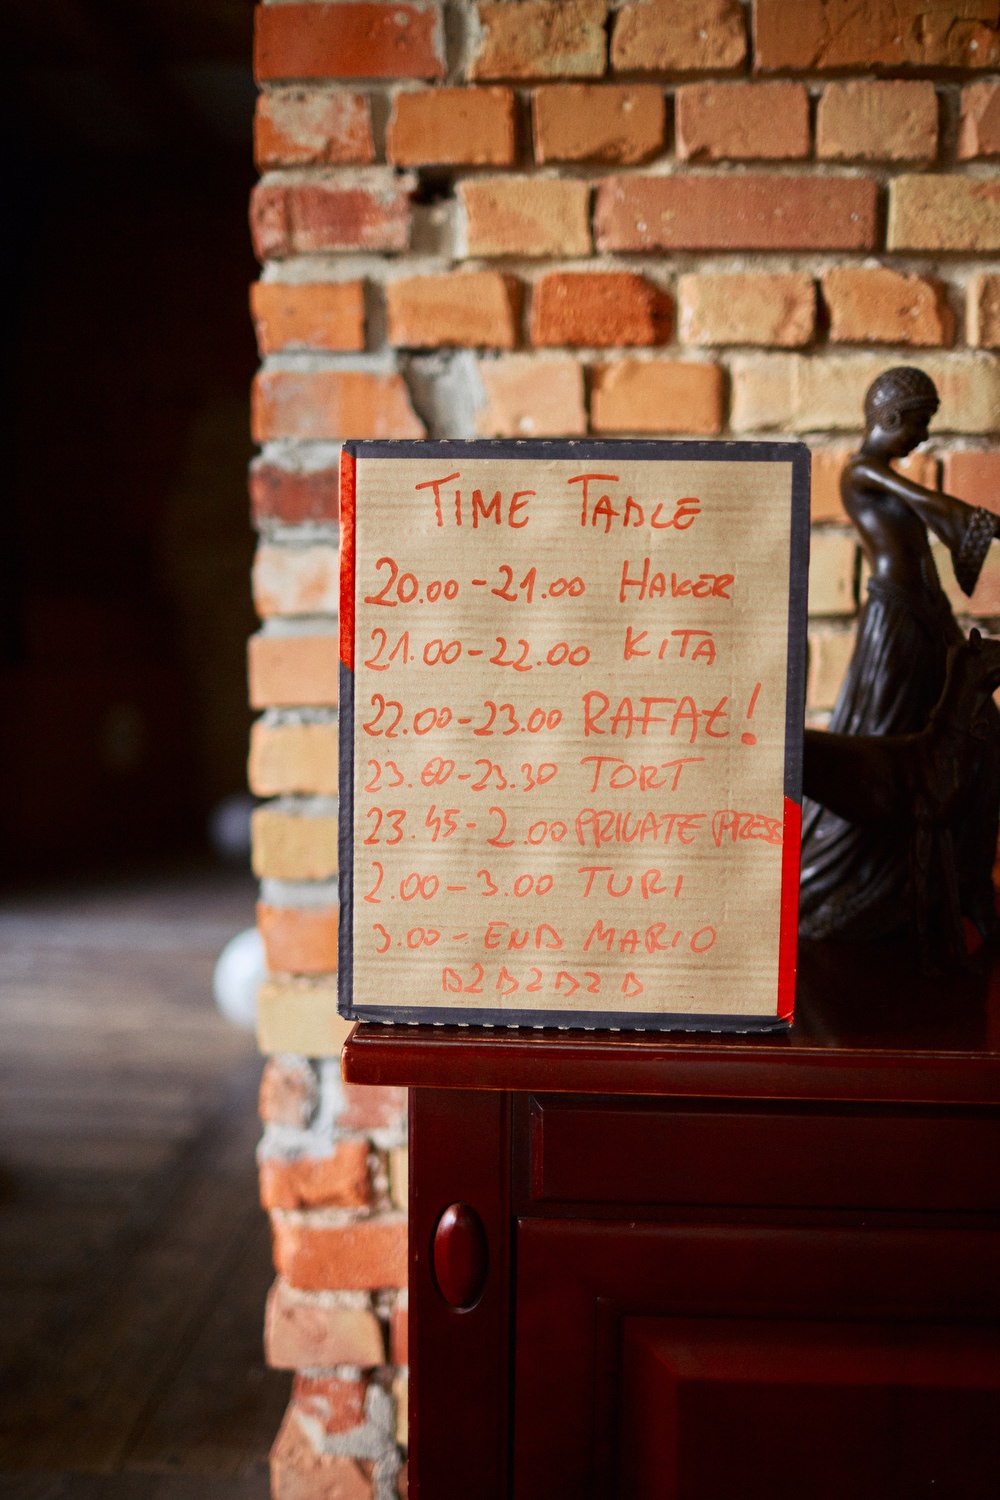 TIME TABLE
20.00-21.00 HAKER
21.00-22.00 KITA
22.00-23.00 RAFAŁ!
23.00-23.30 TORT
23.45-2.00 PRIVATE PRESS
2.00-3.00 TURI
3.00-END MARIO
B2B2B2B